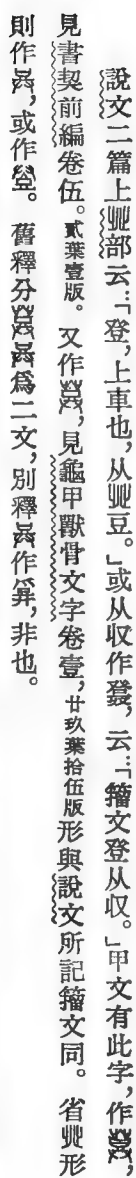 說文二篇上癶部云：「登，上車也，从癶豆。」或从収作𤼷，云：「籀文登从収。」甲文有此字，作，
見書契前編卷伍。貳葉壹版。又作，見龜甲獸骨文字卷壹，廿玖葉拾伍版形與說文所記籀文同。省癶形
則作，或作。舊釋分爲二文，別釋作，非也。